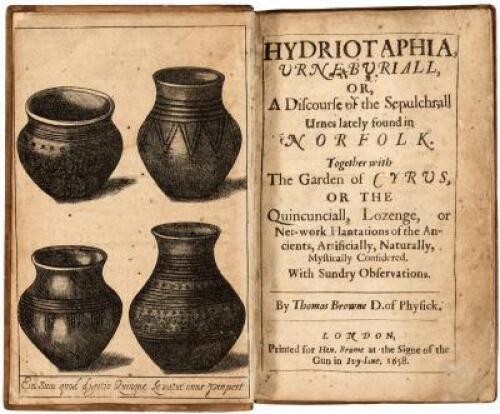 En Sum quod digitis Quinque Levatur onus Propert
HYDRIOTAPHIA,
URNEBURIALL,
OR,
A Discourse of the Sepulchrall
Urnes lately found in
NORFOLK.
Together with
The Garden of CYRUS,
OR THE
Quincunciall, Lozenge, or
Net-work Plantations of the An-
cients, Artificially, Naturally,
Mystically Considered.
With Sundry Observations.
By Thomas Browne D. of Physick.
LONDON,
Printed for Hen. Brome at the Signe of the
Gun in Ivy-lane, 1658.